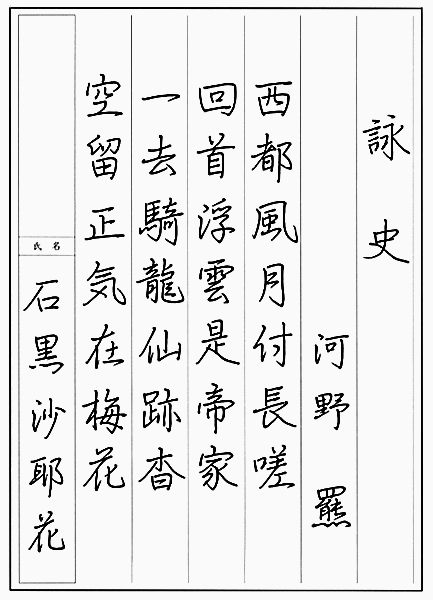 詠史
河野 羆
西都風月付長嗟
回首浮雲是帝家
一去騎龍仙跡杳
空留正気在梅花
氏名
石黒沙耶花